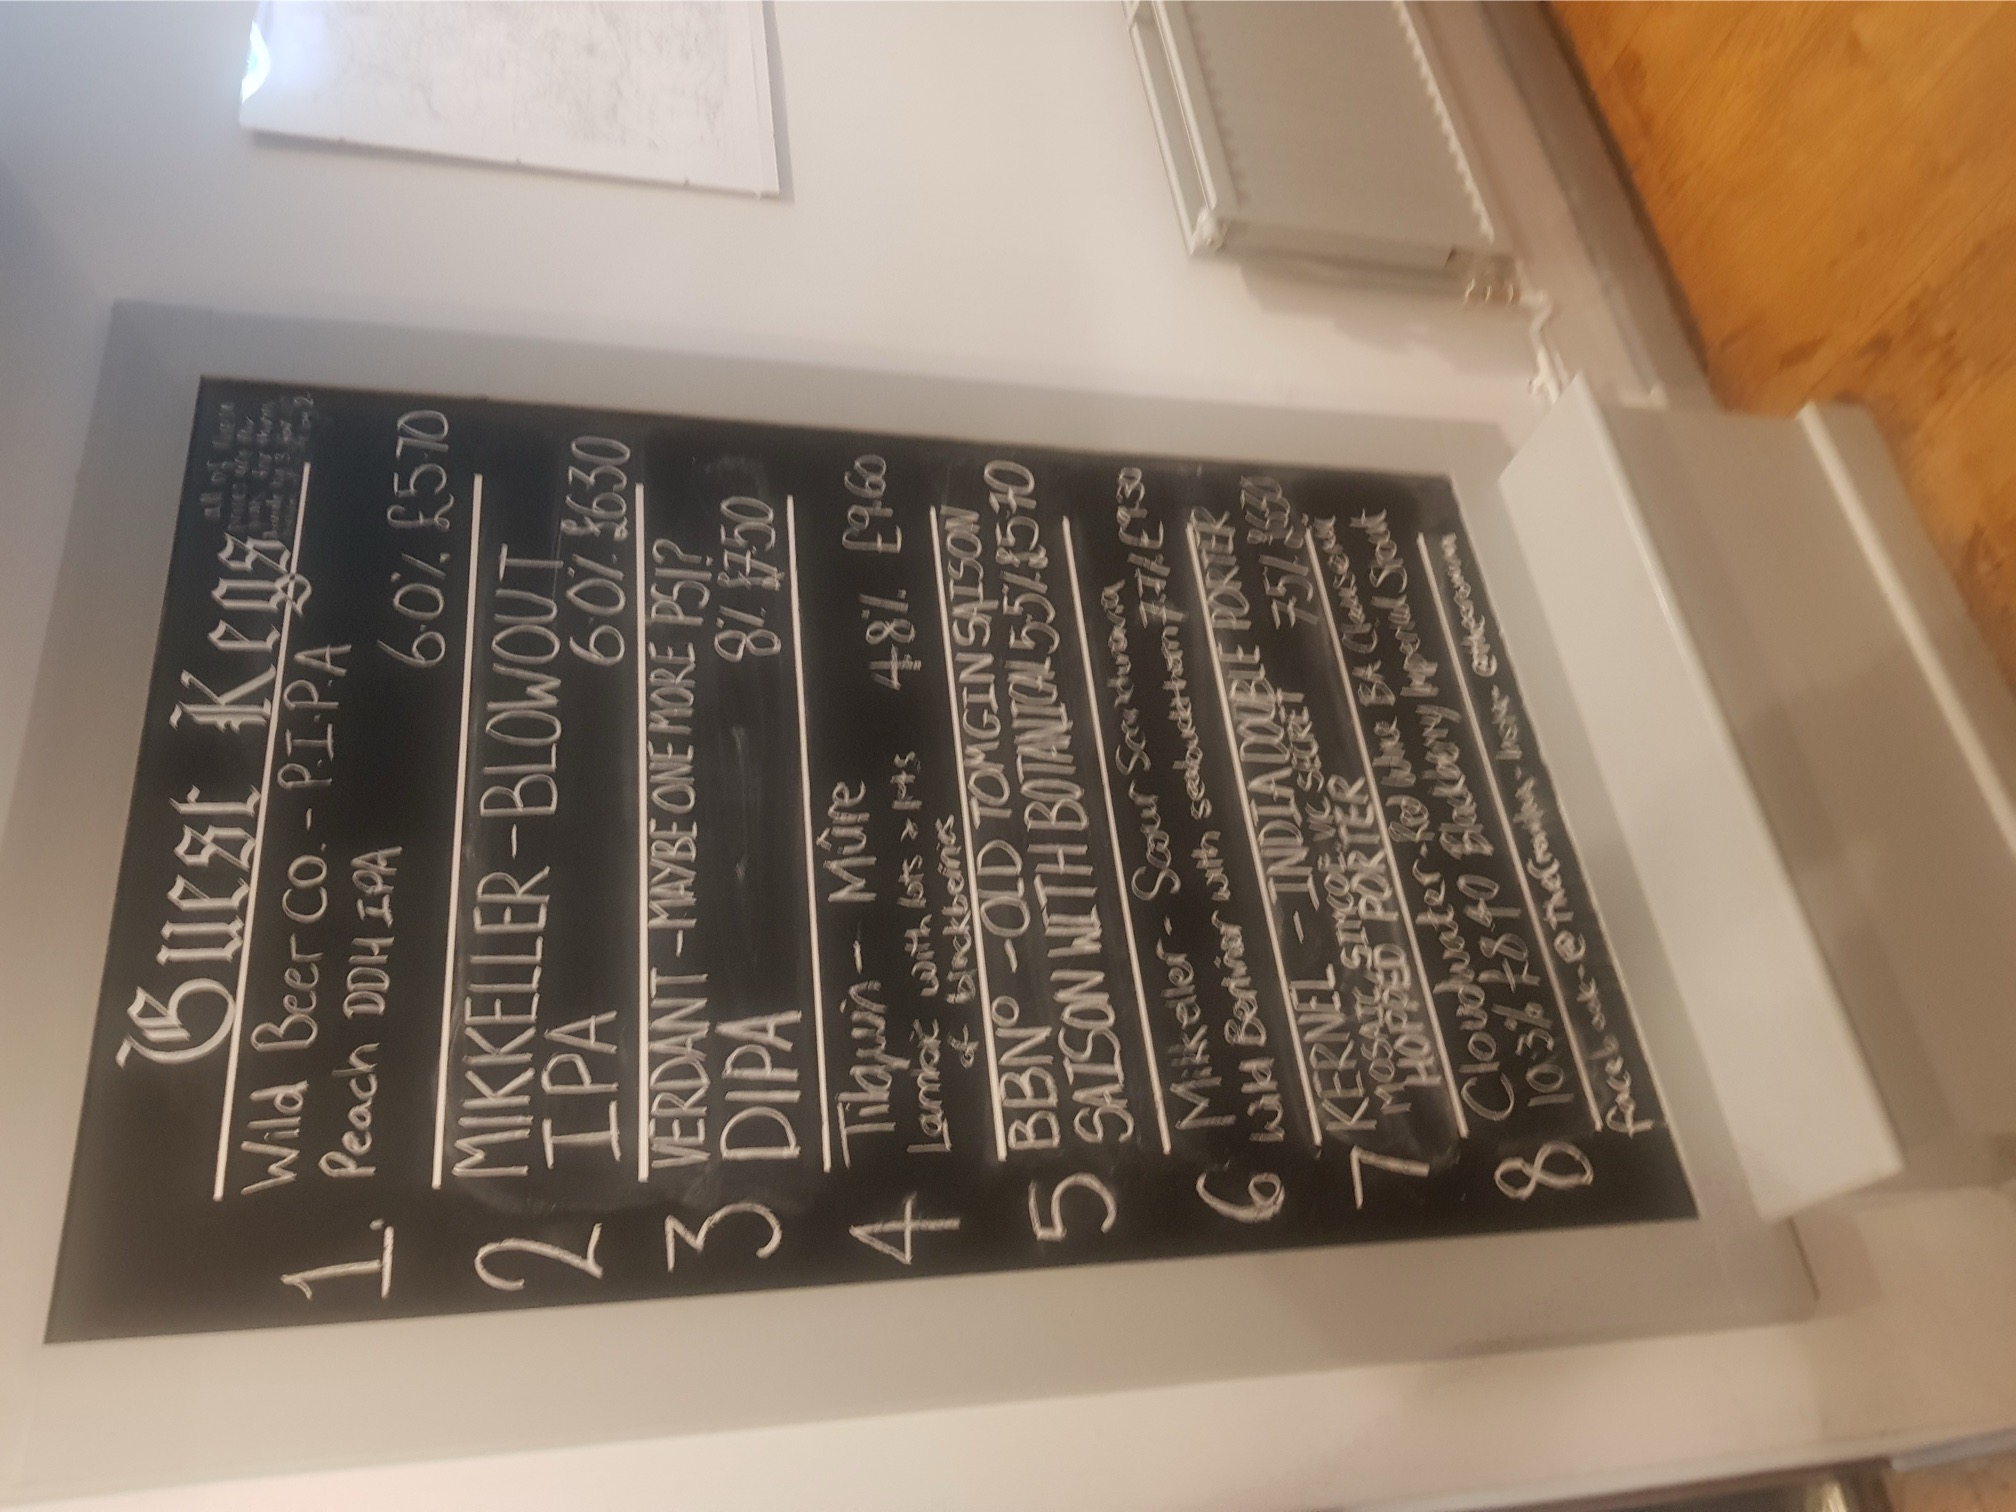 Guest Kegs
all of these
1. Wild Beer Co. - P.I.P.A
Peach DDH IPA 6.0% £5.70
2 MIKKELLER - BLOWOUT
IPA 6.0% £6.30
3 VERDANT - MAYBE ONE MORE PSI?
DIPA 8% £7.50
4 Tilquin - Mûre
Lambic with lots > lots 4.8% £9.60
of blackberries
5 BBNº - OLD TOM GIN SAISON
SAISON WITH BOTANICAL 5.5% £5.70
6 Mikkeller - Sour
Wild Berliner with seabuckthorn 7.7% £9.30
7 KERNEL - INDIA DOUBLE PORTER
MOSAIC SIMCOE VIC SECRET 7.5% £6.30
HOPPED PORTER
8 Cloudwater - Red Wine BA
10.3% £8.40 Blackberry Imperial Stout